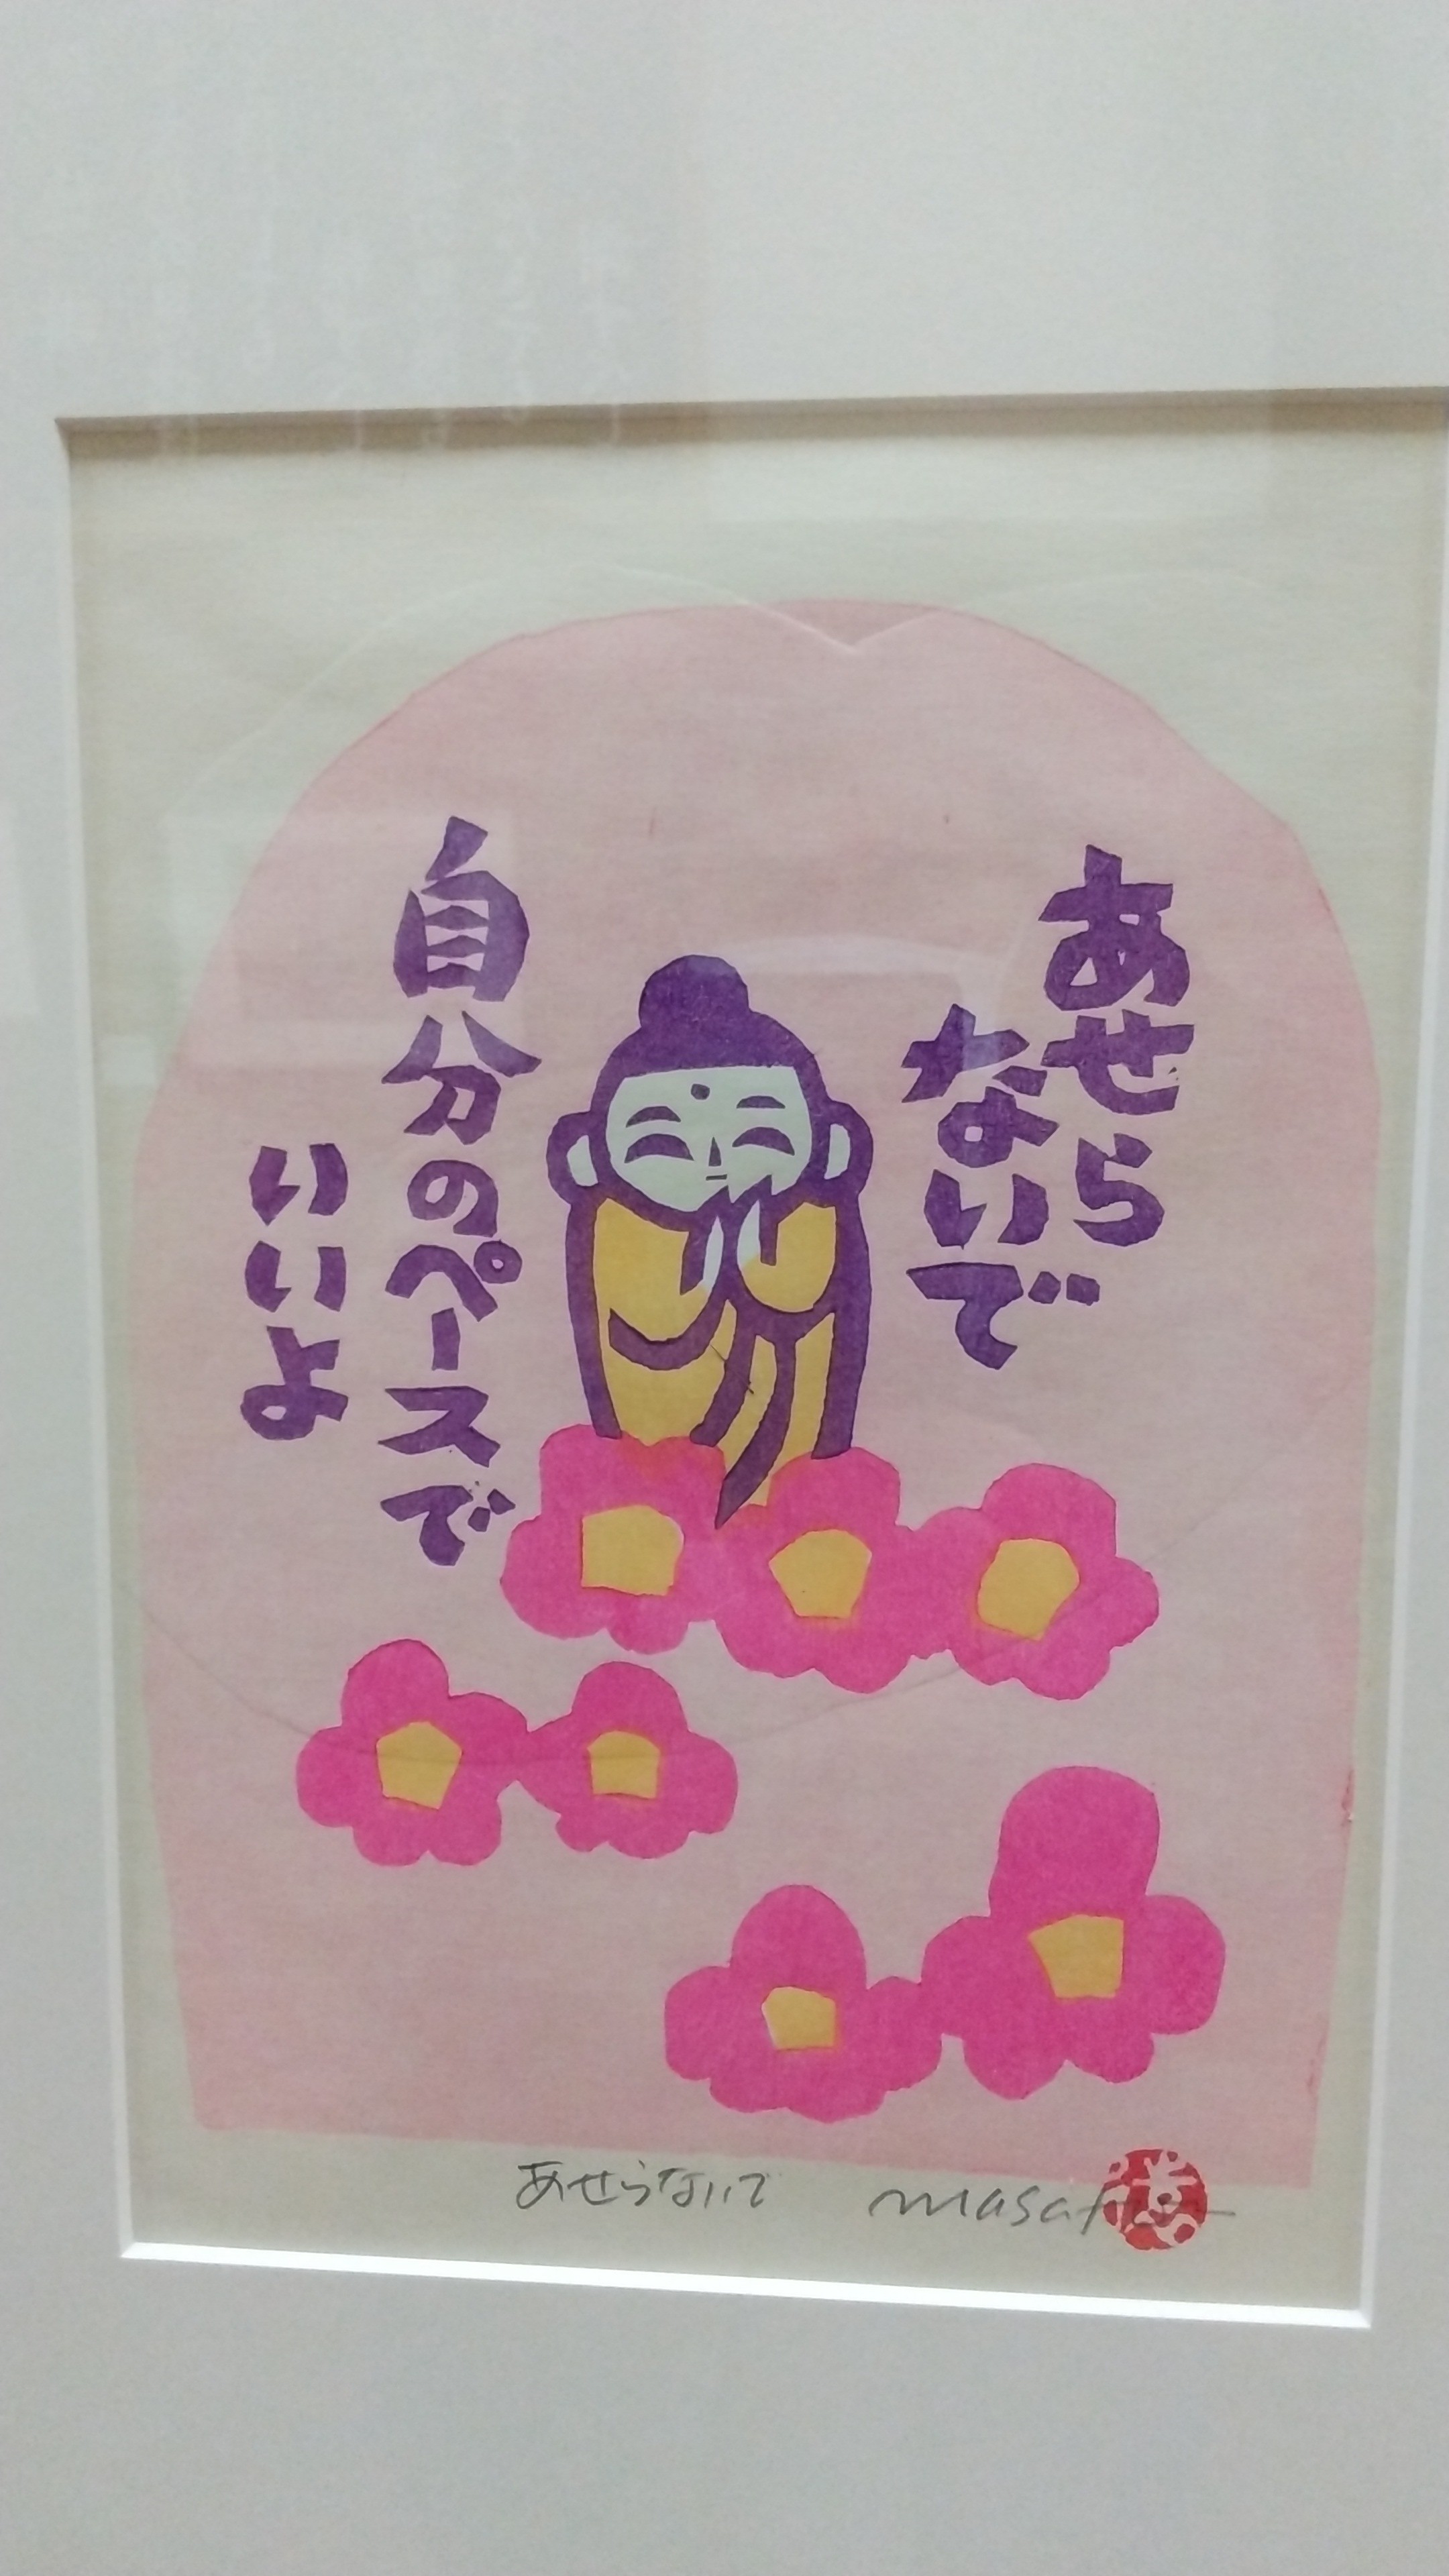 あせら
ないで
自分のペースで
いいよ
あせらないで